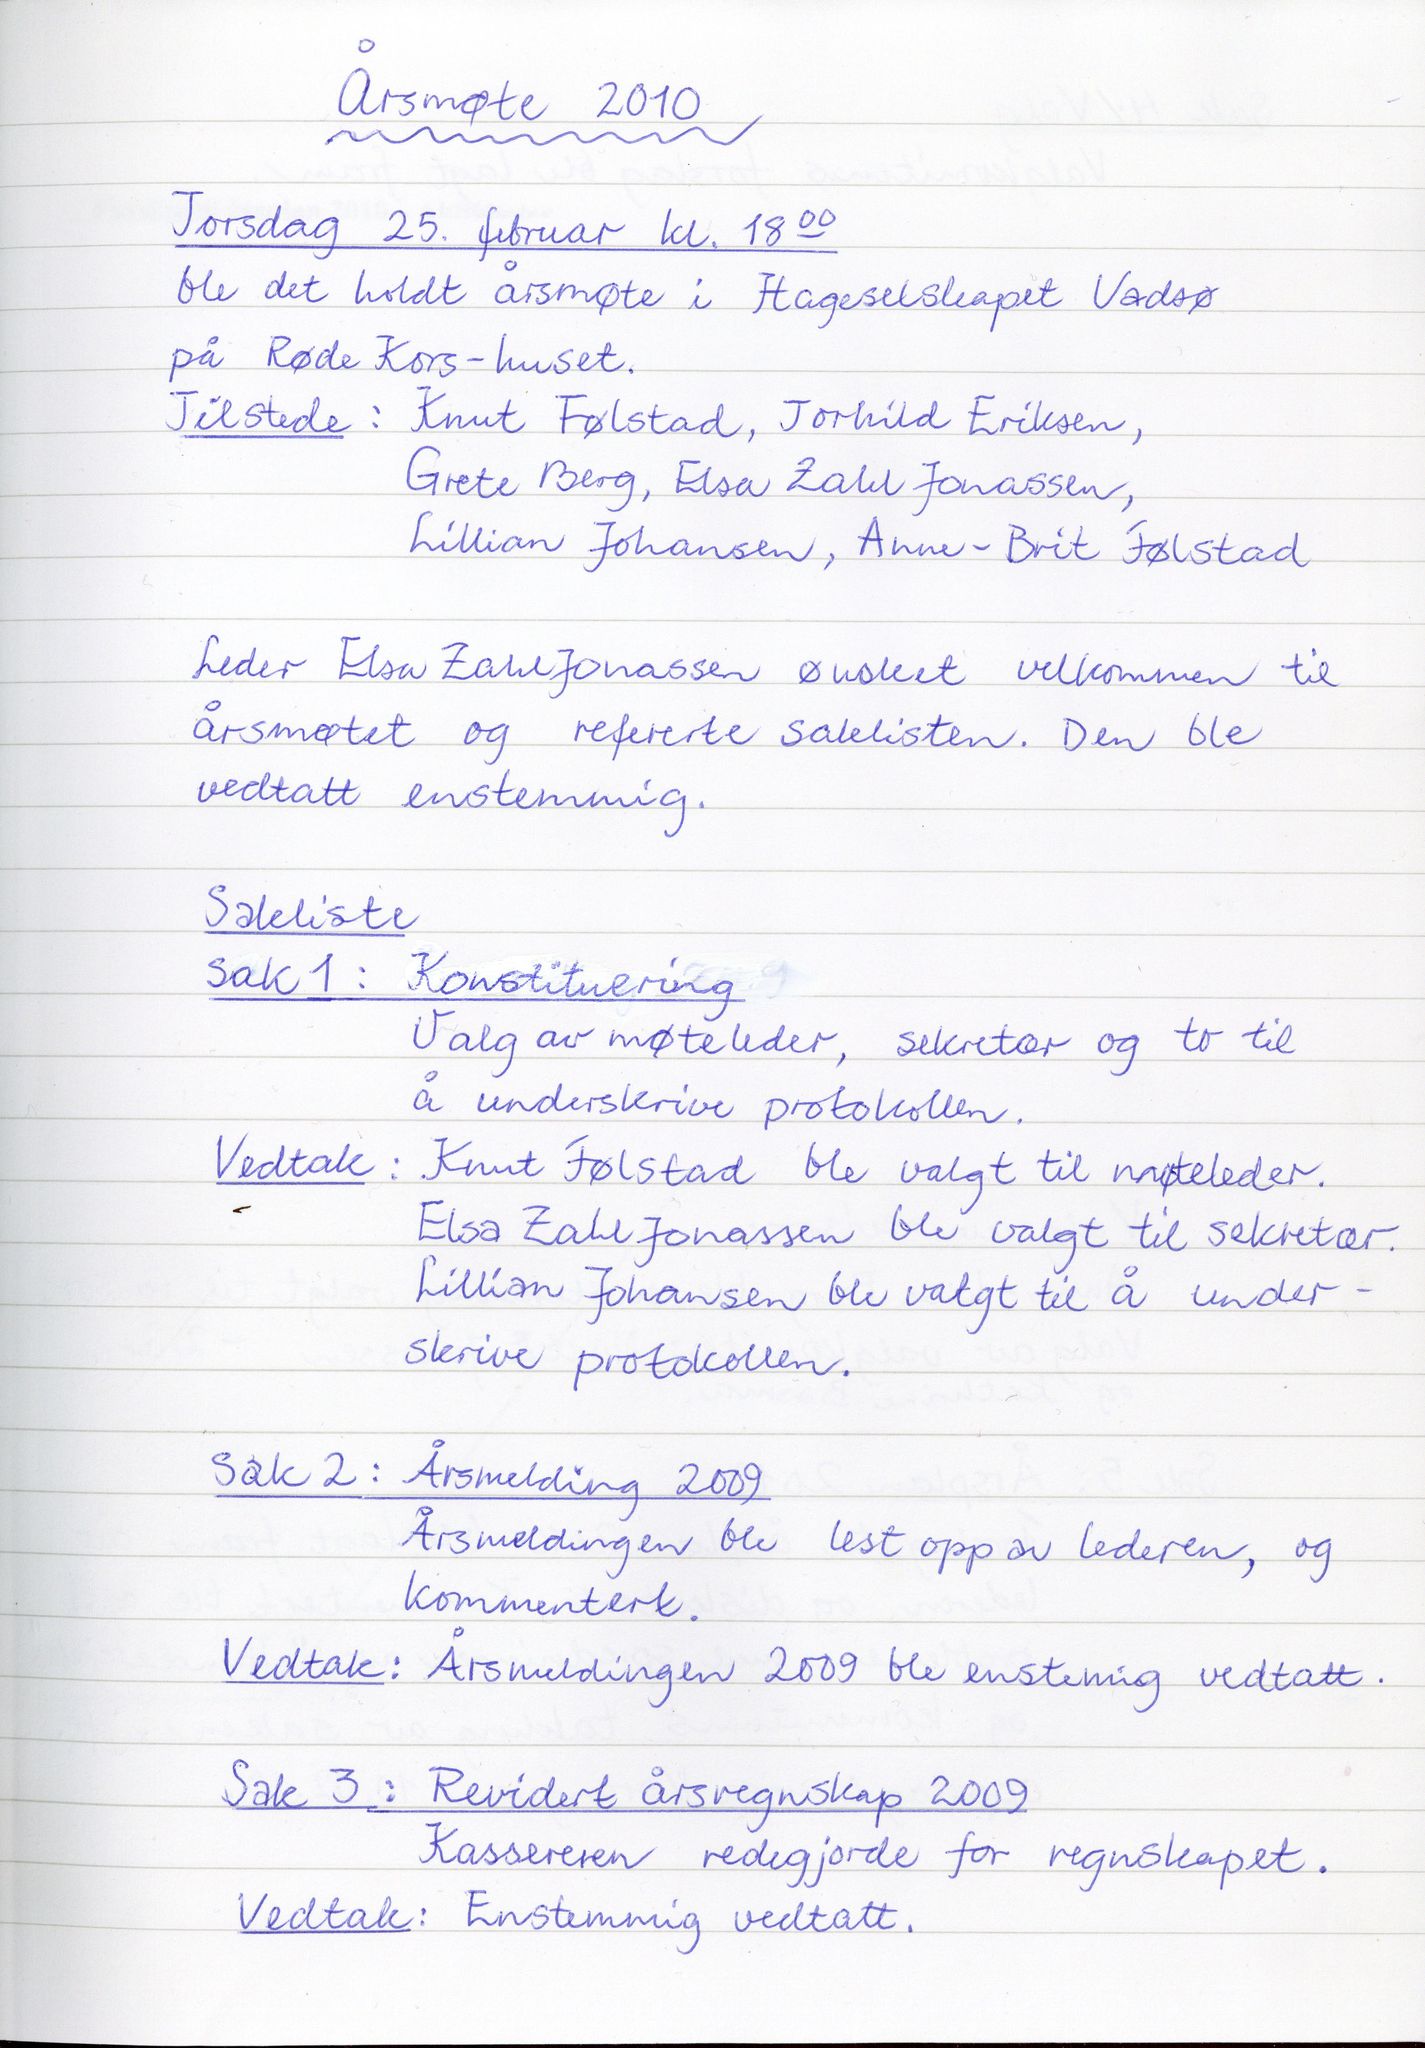 Årsmøte 2010
Torsdag 25. februar kl. 18 00
ble det holdt årsmøte i Hageselskapet Vadsø
på Røde Kors-huset.
Tilstede: Knut Følstad, Torhild Eriksen,
Grete Berg, Elsa Zahl Jonassen,
Lillian Johansen, Anne-Brit Følstad
Leder Elsa Zahl Jonassen ønsket velkommen til
årsmøtet og refererte sakslisten. Den ble
vedtatt enstemmig.
Sakliste
Sak 1: Konstituering
Valg av møteleder, sekretær og to til
å underskrive protokollen.
Vedtak: Knut Følstad ble valgt til møteleder.
Elsa Zahl Jonassen ble valgt til sekretær.
Lillian Johansen ble valgt til å under-
skrive protokollen.
Sak 2: Årsmelding 2009
Årsmeldingen ble lest opp av lederen, og
kommentert.
Vedtak: Årsmeldingen 2009 ble enstemig vedtatt.
Sak 3: Revidert årsregnskap 2009
Kassereren redegjorde for regnskapet.
Vedtak: Enstemmig vedtatt.